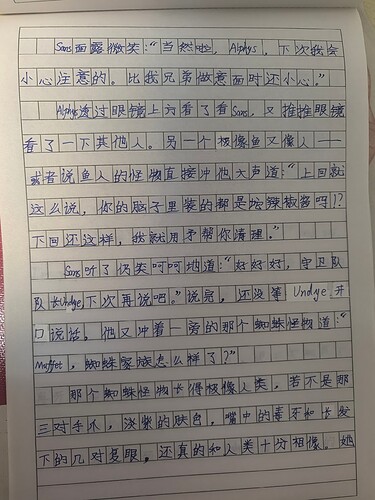 Sans面露微笑：“当然啦，Alphys，下次我会
小心注意的。比我兄弟做意面时还小心。”
Alphys透过眼镜上方看了看Sans，又推推眼镜
看了一下其他人。另一个极像鱼又像人——
或者说鱼人的怪物直接冲他大声道：“上回就
这么说，你的脑子里装的都是坛辣椒酱吗！？
下回还这样，我就用矛帮你清理。”
Sans听了仍笑呵呵地道：“好好好，守卫队
队长Undye下次再说吧。”说完，还没等 Undye 开
口说话。他又冲着一旁的那个蜘蛛怪物道：“
Muffet，蜘蛛家族怎么样了？”
那个蜘蛛怪物长得极像人类，若不是那
三对手爪，淡紫的肤色，嘴中的毒牙和长发
下的几对复眼，还真的和人类十分相像。她